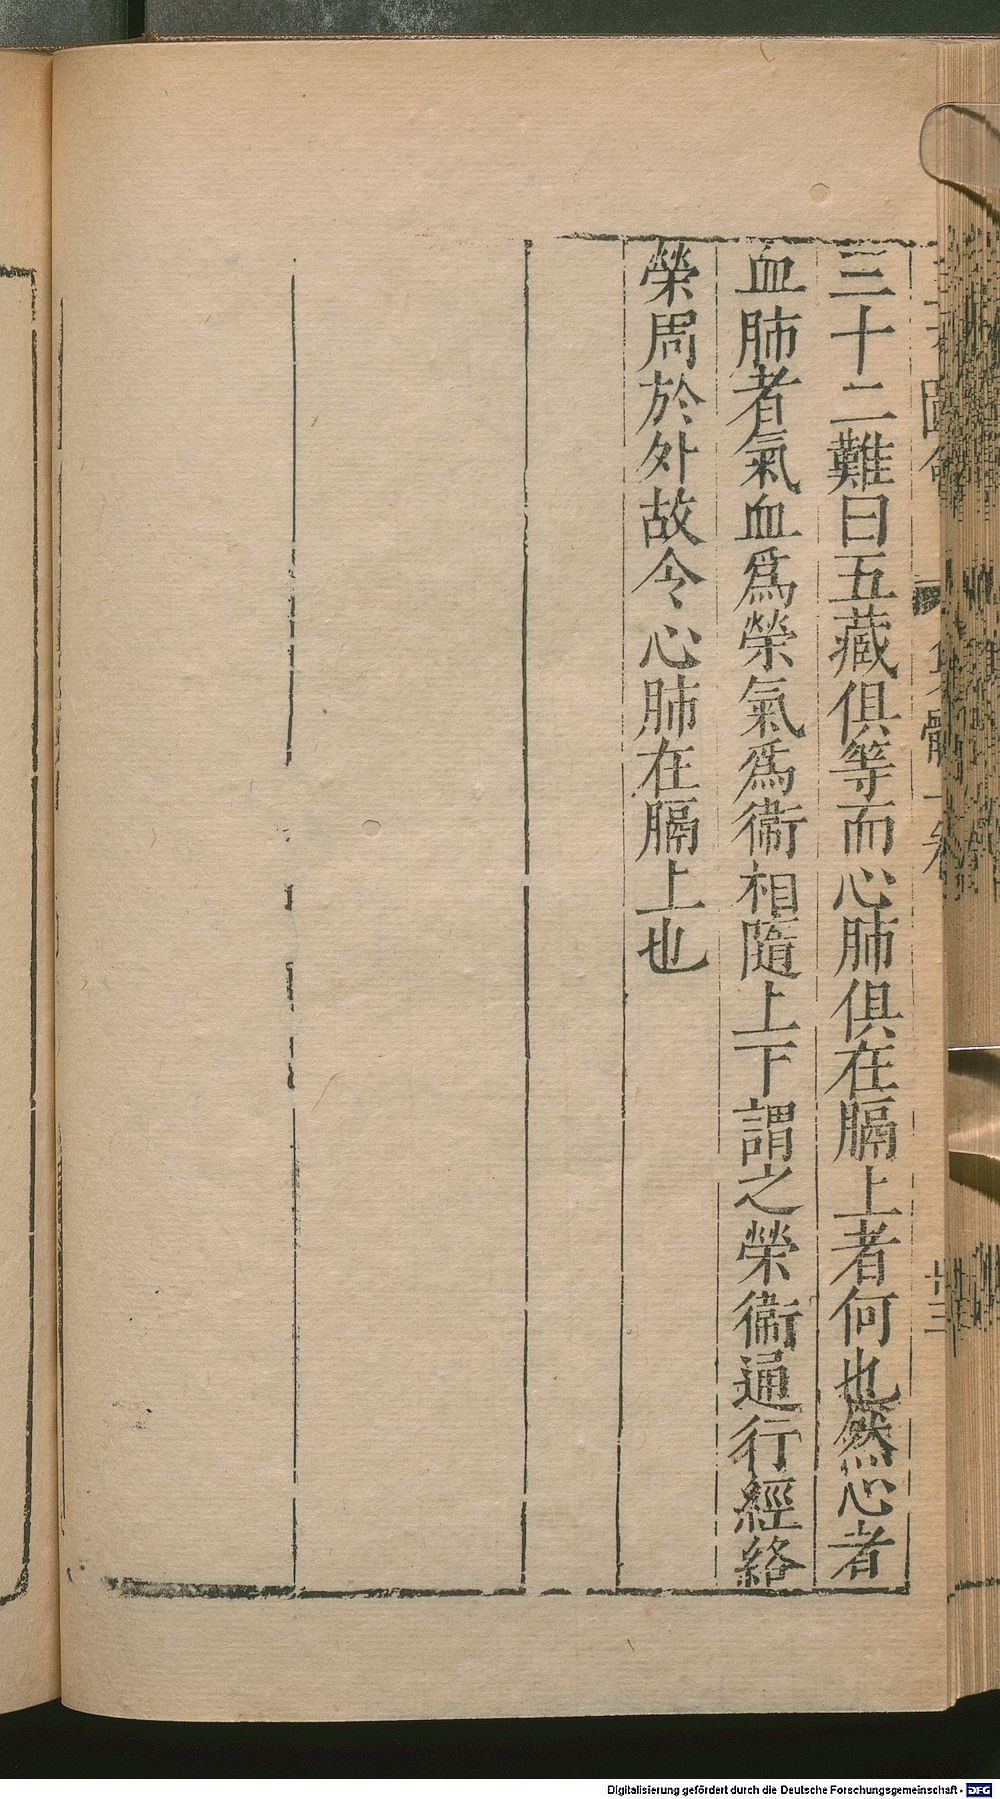 三十二難曰五藏俱等而心肺俱在膈上者何也然心者
血肺者氣血爲榮氣爲衞相隨上下謂之榮衞通行經絡
榮周於外故令心肺在膈上也
廿三
Digitalisierung gefördert durch die Deutsche Forschungsgemeinschaft - DFG